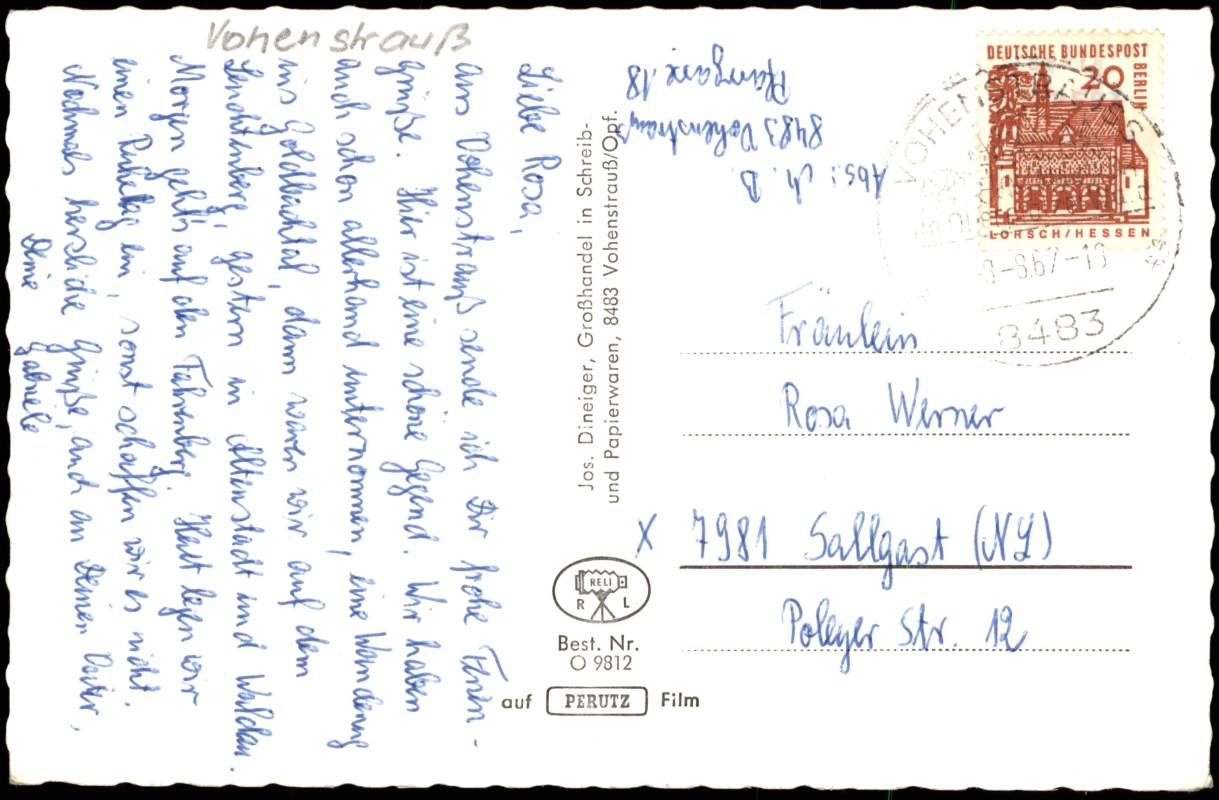 Vohenstrauß
Liebe Rosa,
aus Vohenstrauß sende ich Dir frohe Ferien-
grüße. Hier ist eine schöne Gegend. Wir haben
auch schon allerhand unternommen, eine Wanderung
ins Goldbachtal, dann waren wir auf dem
Leuchtenberg, gestern in Altenstadt und Waldau.
Morgen geht's auf den Fahrenberg. Heut legen wir
einen Ruhetag ein, sonst schaffen wir es nicht.
Nochmals herzliche Grüße, auch an Deinen
Deine
Gabriele
Jos. Dineiger, Großhandel in Schreib-
und Papierwaren, 8483 Vohenstrauß/Opf.
RELI
R L
Best. Nr.
O 9812
auf PERUTZ Film
Abs: M. B.
8483 Vohenstrauß
Pfarrgasse 18
DEUTSCHE BUNDESPOST
BERLIN
20
LORSCH/HESSEN
VOHENSTRAUSS
-8.67-18
8483
Fräulein
Rosa Werner
X 7981 Sallgast (NL)
Poleyer Str. 12